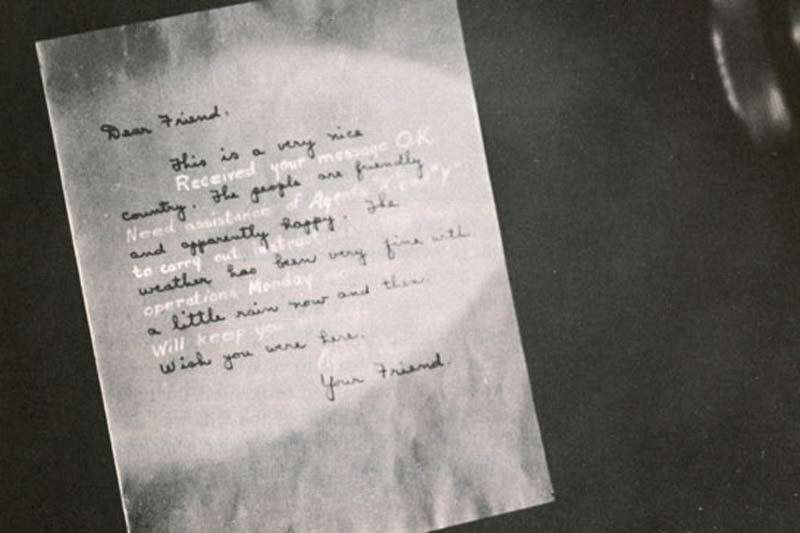 Dear Friend.
This is a very nice
Received your message O.K.
country. The people are friendly
Need assistance of Agents
and apparently happy. The
to carry out
weather has been very fine with
operations Monday
a little rain now and then.
Will keep you
Wish you were here.
Your Friend.